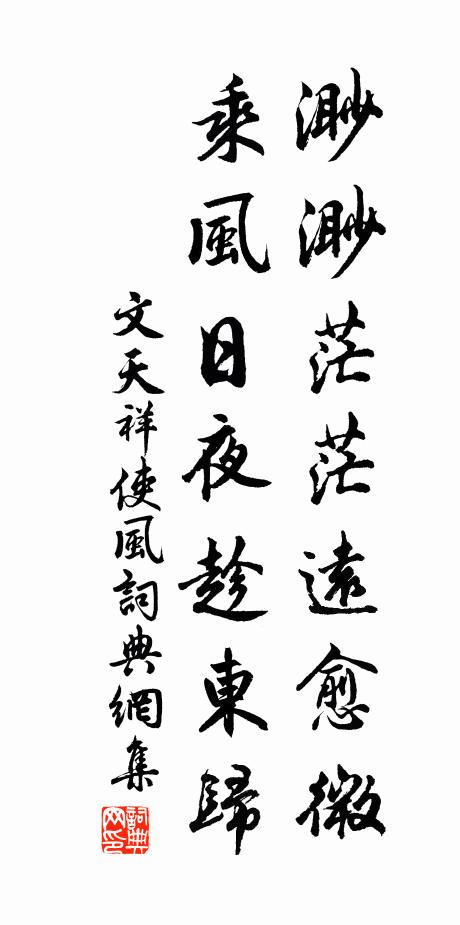 渺渺茫茫遠愈微
乘風日夜趁東歸
文天祥使風詞典網集
詞典
网印